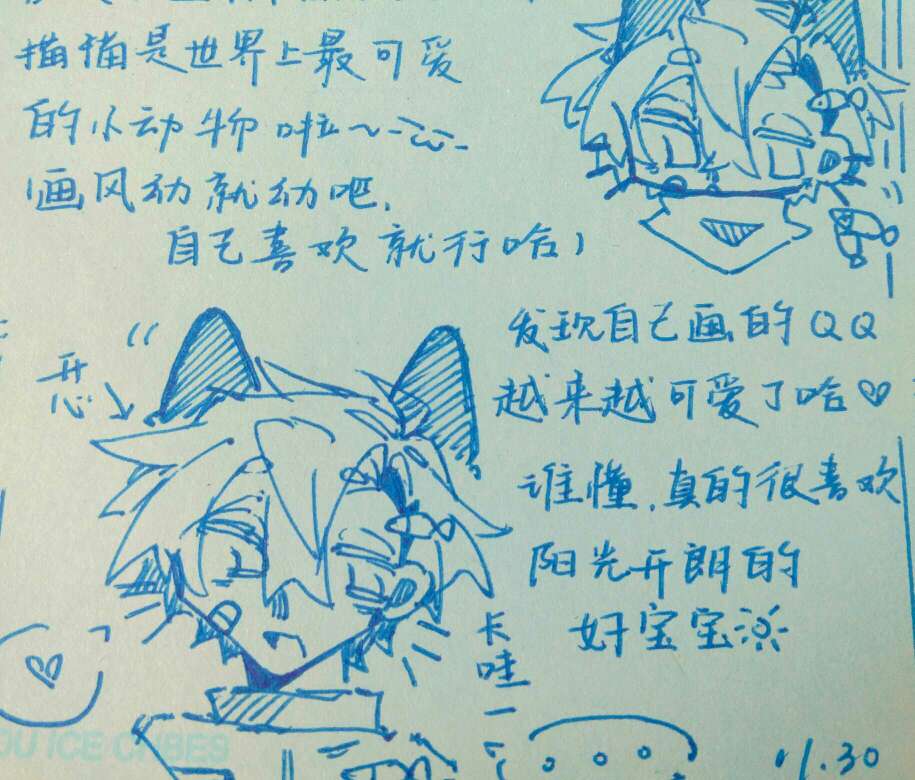 猫猫是世界上最可爱
的小动物啦~
画风动就动吧,
自己喜欢就行哈)
开心
发现自己画的QQ
越来越可爱了哈♡
谁懂,真的很喜欢
阳光开朗的
好宝宝
卡哇一
OU ICE CUBES
11.30